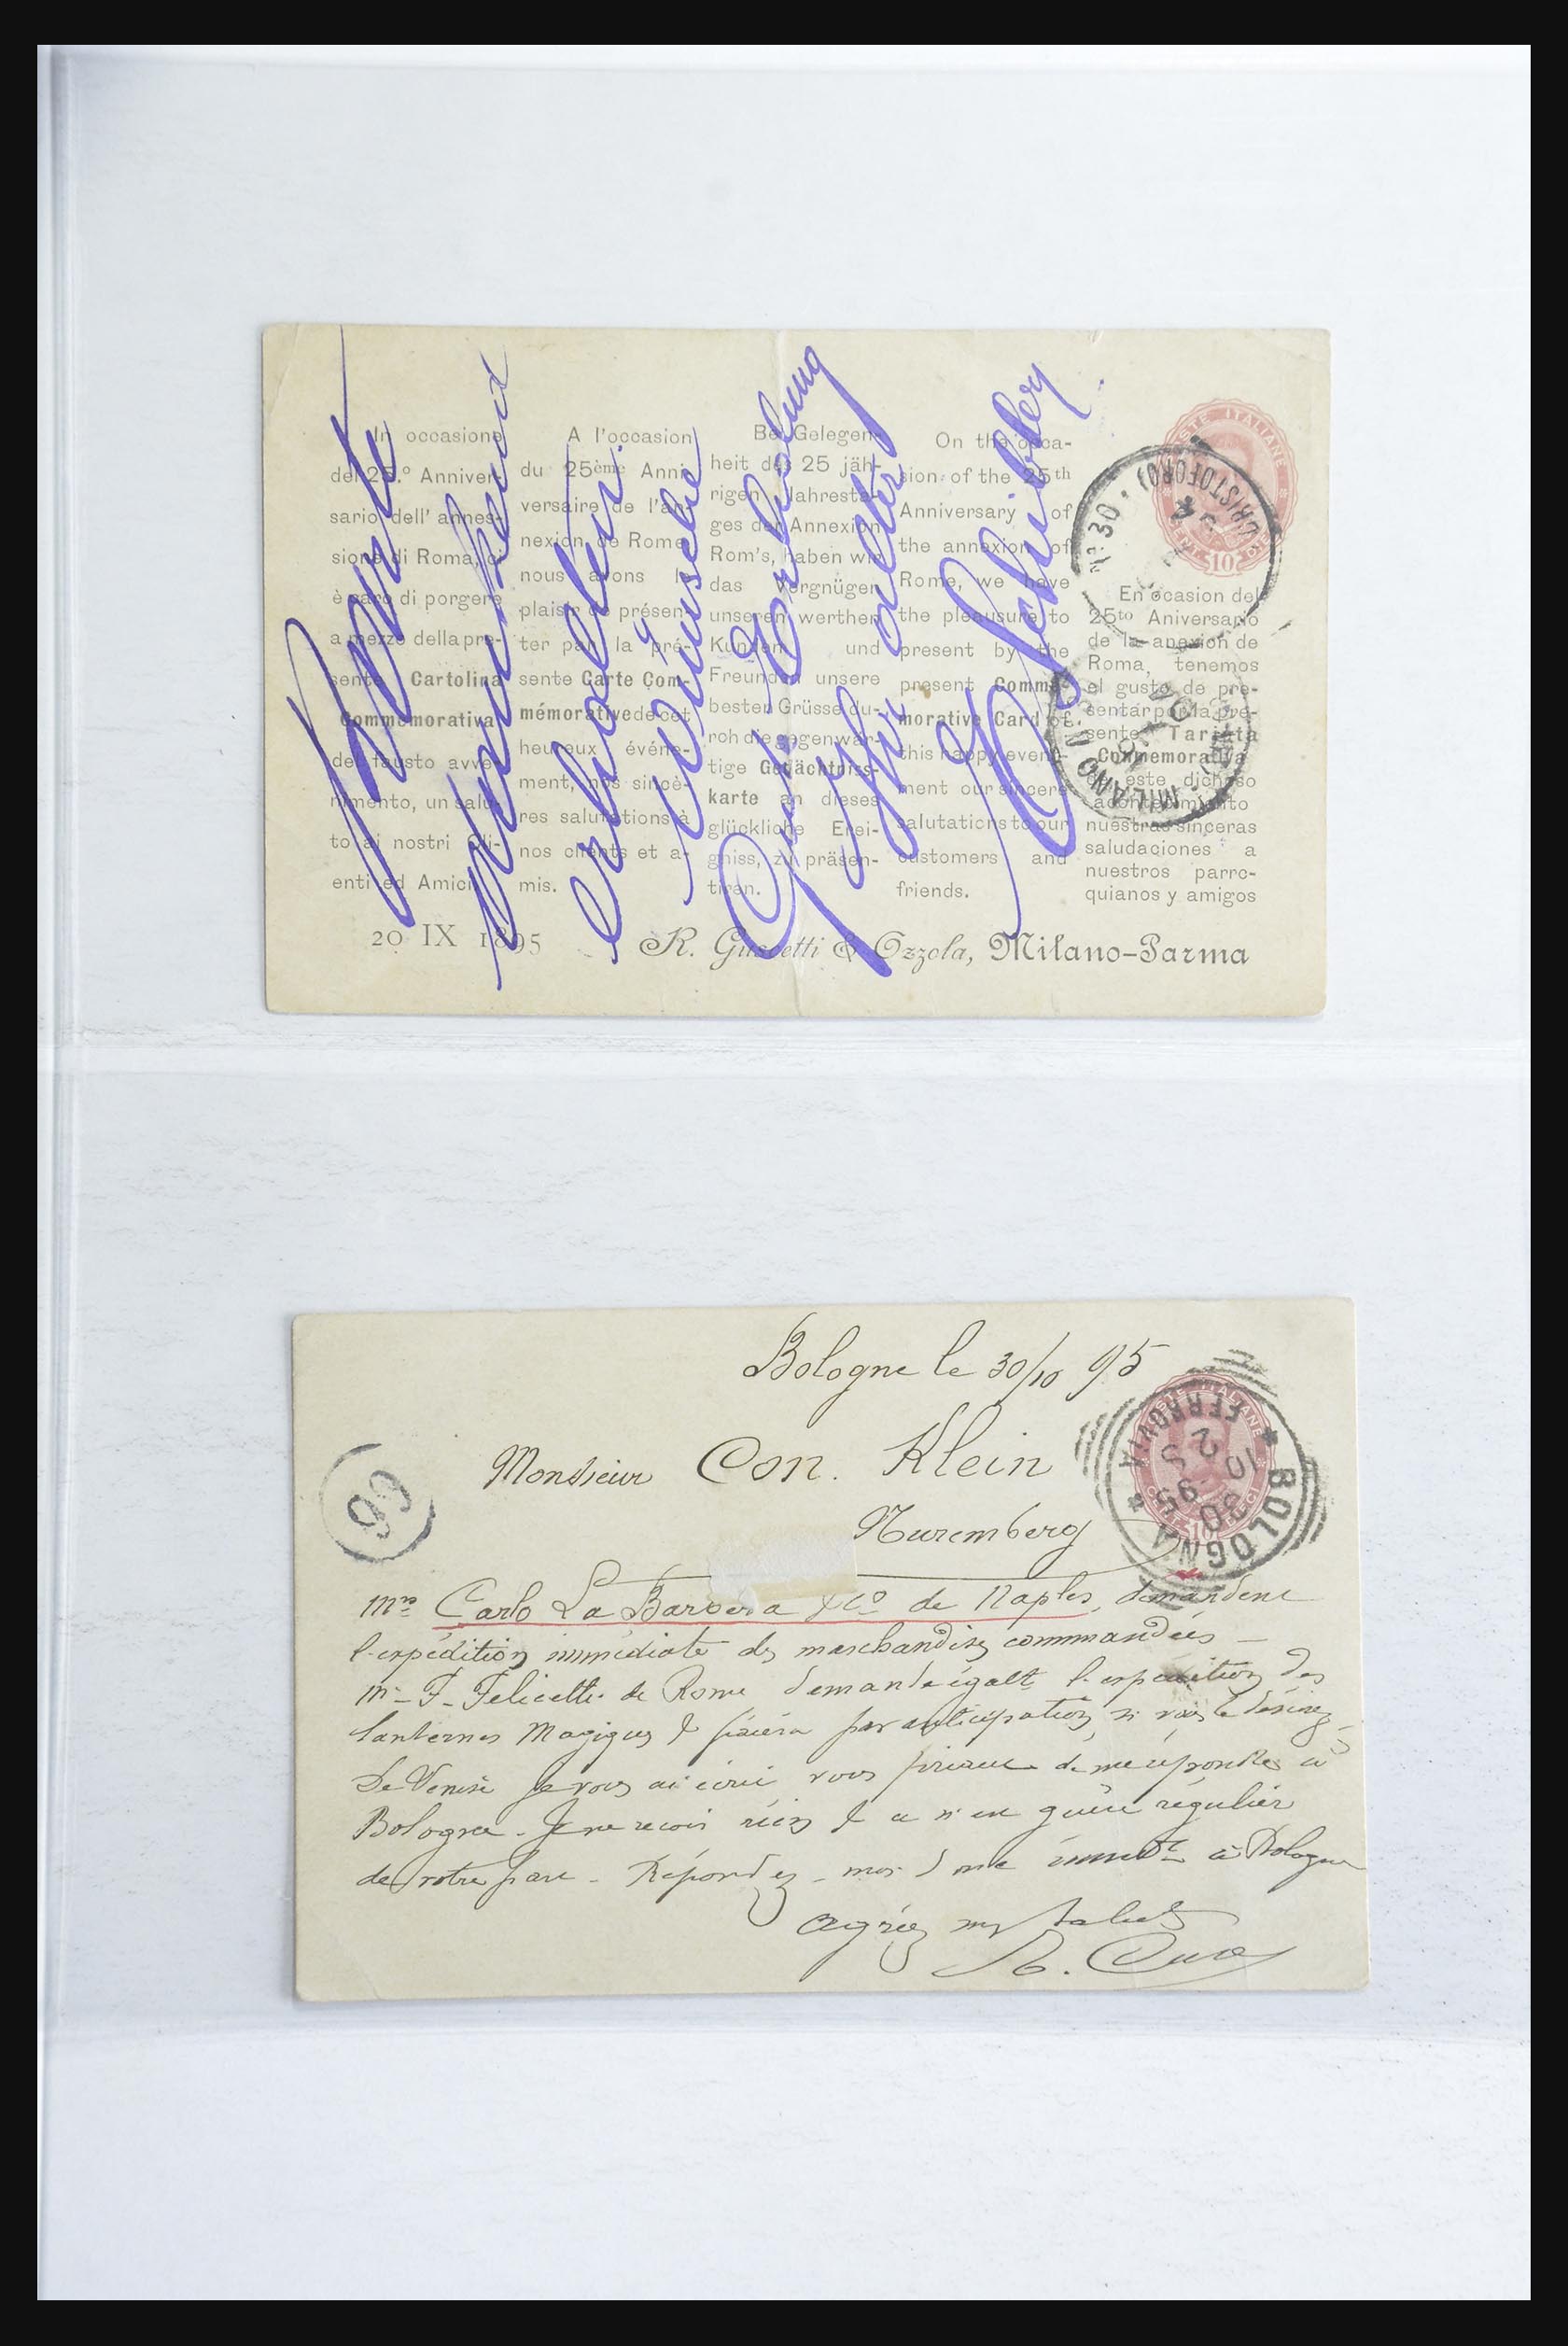 In occasione
del 25.º Anniver-
sario dell' annes-
sione di Roma, ci
è caro di porgere
a mezzo della pre-
sente Cartolina
Commemorativa
del fausto avve-
nimento, un salu-
to ai nostri Cli-
enti ed Amici.
A l'occasion
du 25ème Anni-
versaire de l'an-
nexion de Rome
nous avons le
plaisir de présen-
ter par la pré-
sente Carte Com-
mémorative de cet
heureux événe-
ment, nos sincè-
res salutations à
nos clients et a-
mis.
Bei Gelegen-
heit des 25 jäh-
rigen Jahresta-
ges der Annexion
Rom's, haben wir
das Vergnügen
unseren werthen
Kunden und
Freunden unsere
besten Grüsse du-
rch die gegenwär-
tige Gedächtniss-
karte an dieses
glückliche Erei-
gniss, zu präsen-
tiren.
On the occa-
sion of the 25th
Anniversary of
the annexion of
Rome, we have
the pleausure to
present by the
present Comme-
morative Card of
this happy event-
ment our sincere
salutations to our
customers and
friends.
En ocasion del
25to Aniversario
de la anexion de
Roma, tenemos
el gusto de pre-
sentar por la pre-
sente Tarjeta
Commemorativa
de este dichoso
acontecimiento
nuestras sinceras
saludaciones a
nuestros parro-
quianos y amigos
20 IX 1895
R. Guscetti & Ozzola, Milano-Parma
Karte
dankend
erhalten.
Wünsche
Gute Erholung
Schibler
POSTE ITALIANE
CENT. 10 DIECI
Nº 30.
(CRISTOFORO)
MILANO
Bologne le 30/10 95
Monsieur Con. Klein
Nuremberg
Mrs Carlo La Barbera & Co de Naples, demandent
l'expédition immédiate des marchandises commandées –
Mr – F – Felicetti de Rome demande égalt l'expédition des
lanternes Magiques & paiera par anticipation, si vous le désirez –
De Venise je vous ai écrit vous priant de me répondre à
Bologne. Je ne reçois rien & ce n'est guère régulier
de votre part – Répondez – moi donc immédte à Bologne
Agréez mes saluts
POSTE ITALIANE
CENT. 10 DIECI
BOLOGNA
FERROVIA
30
10 95
5 S
66